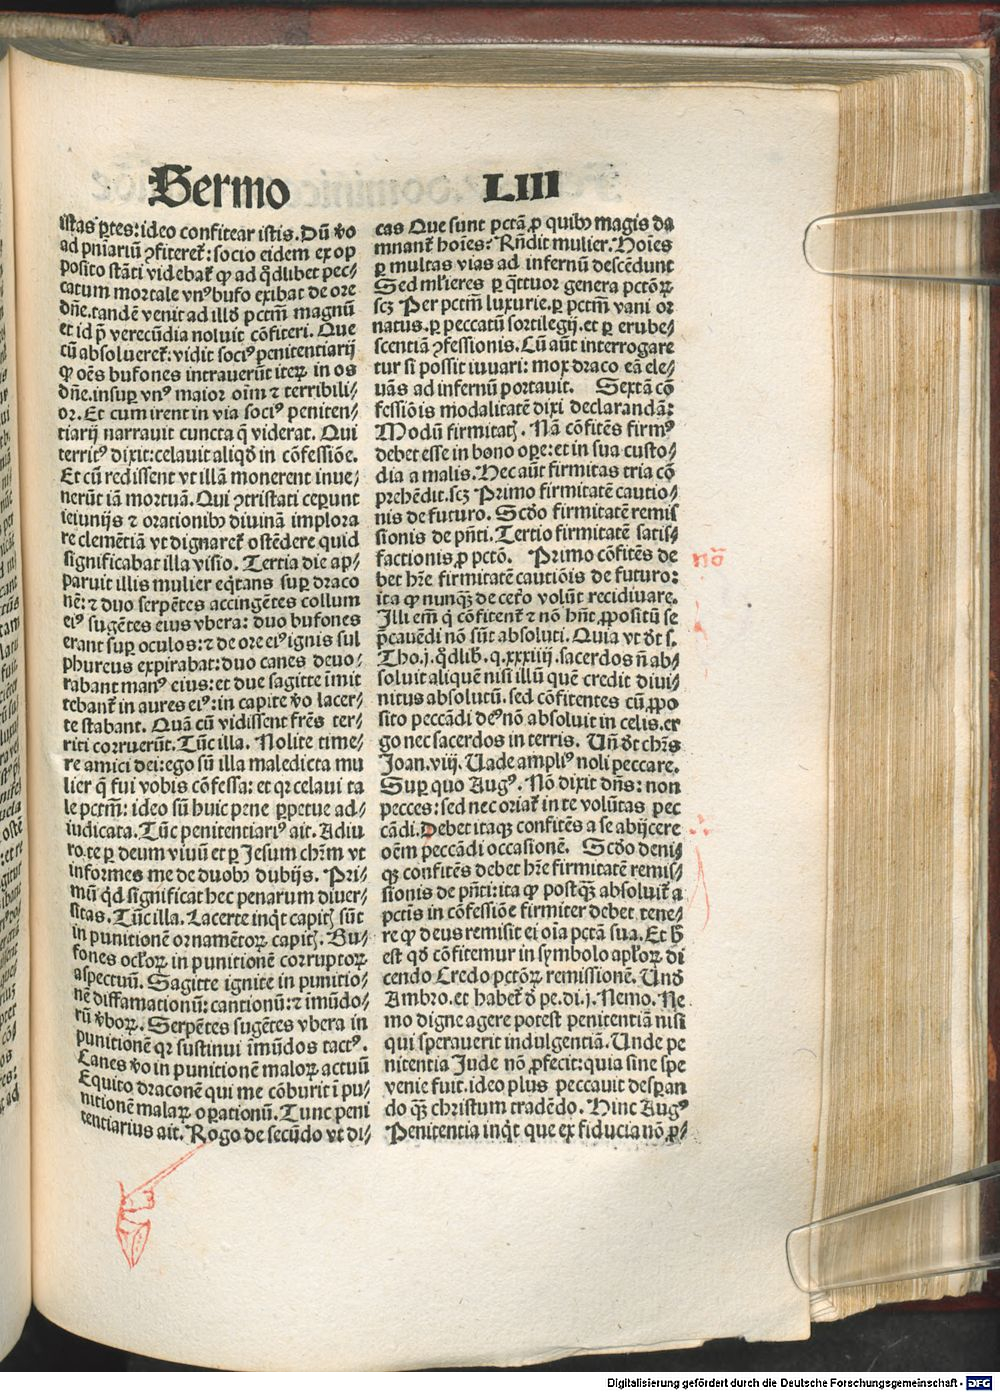 Sermo LIII
istas ꝑtes: ideo confitear istis. Dū ꝟo
ad pniariū ꝯfiteret᷑: socio eidem ex op
posito stāti videbat᷑ ꝙ ad qd̄libet pec⸗
catum mortale vnꝰ bufo exibat de ore
dn̄e. tandē venit ad illḋ pctm̄ magnū
et id p̄ verecūdia noluit cōfiteri. Que
cū absolueret᷑: vidit sociꝰ penitentiarij
ꝙ oēs bufones intrauerūt iteꝝ in os
dn̄e. insuꝑ vnꝰ maior oīm ⁊ terribili⸗
or. Et cum irent in via sociꝰ peniten⸗
tiarij narrauit cuncta q̄ viderat. Qui
territꝰ dixit: celauit aliqḋ in cōfessiōe.
Et cū redissent vt illā monerent inue⸗
nerūt iā mortuā. Qui ꝯtristati ceperunt
ieiunijs ⁊ orationibꝰ diuinā implora
re clemētiā vt dignaret᷑ ostēdere quid
significabat illa visio. Tertia die ap⸗
paruit illis mulier eq̇tans suꝑ draco
nē: ⁊ duo serpētes accingētes collum
eiꝰ sugētes eius vbera: duo bufones
erant suꝑ oculos: ⁊ de ore eiꝰ ignis sul
phureus expirabat: duo canes deuo⸗
rabant manꝰ eius: et due sagitte īmit
tebant᷑ in aures eiꝰ: in capite ꝟo lacer⸗
te stabant. Quā cū vidissent frēs ter⸗
riti corruerūt. Tūc illa. Nolite time⸗
re amici dei: ego sū illa maledicta mu
lier q̄ fui vobis cōfessa: et qꝛ celaui ta
le pctm̄: ideo sū huic pene ꝑpetue ad⸗
iudicata. Tūc penitentiariꝰ ait. Adiu
ro te ꝑ deum viuū et ꝑ Jesum chr̄m vt
informes me de duobꝰ dubijs. Pri⸗
mū qd̄ significat hec penarum diuer⸗
sitas. Tūc illa. Lacerte inq̇t capitꝭ sūt
in punitionē ornamētoꝝ capitꝭ. Bu⸗
fones oclōꝝ in punitionē corruptoꝝ
aspectuū. Sagitte ignite in punitio⸗
nē diffamationū: cantionū: ⁊ īmūdo⸗
rū ꝟboꝝ. Serpētes sugētes vbera in
punitionē qꝛ sustinui īmūdos tactꝰ.
Canes ꝟo in punitionē maloꝝ actuū
Equito draconē qui me cōburit ī pu⸗
nitionē malaꝝ oꝑationū. Tunc peni
tentiarius ait. Rogo de secūdo vt di⸗
cas Que sunt pctā ꝓ quibꝰ magis da
mnant᷑ hoīes? Rn̄dit mulier. Hoīes
ꝑ multas vias ad infernū descēdunt
Sed ml̄ieres ꝑ q̇ttuor genera pctōꝝ
scꝫ Per pctm̄ luxurie. ꝑ pctm̄ vani or
natus. ꝑ peccatū sortilegij. et ꝑ erube⸗
scentiā ꝯfessionis. Cū aūt interrogare
tur si possit iuuari: mox draco eā ele⸗
uās ad infernū portauit. Sextā cō
fessiōis modalitatē dixi declarandā:
Modū firmitatꝭ. Nā cōfitēs firmꝰ
debet esse in bono oꝑe: et in sua custo⸗
dia a malis. Hec aūt firmitas tria cō
prehēdit. scꝫ Primo firmitatē cautio⸗
nis de futuro. Scḋo firmitatē remis
sionis de pn̄ti. Tertio firmitatē satis⸗
factionis ꝓ pctō. Primo cōfitēs de
bet hr̄e firmitatē cautiōis de futuro:
ita ꝙ nunqꝫ de cet̄o volūt recidiuare.
Illi em̄ q̇ cōfitent᷑ ⁊ nō hn̄t ꝓpositū se
p̄cauēdi nō sūt absoluti. Quia vt dt̄ s.
Tho. j. qd̄lib. q. xxxiiij. sacerdos nō ab⸗
soluit aliquē nisi illū quē credit diui⸗
nitus absolutū. sed cōfitentes cū ꝓpo
sito peccādi deꝰ nō absoluit in celis. er
go nec sacerdos in terris. Uñ dt̄ chr̄s
Joan. viij. Uade ampliꝰ noli peccare.
Suꝑ quo Augꝰ. Nō dixit dn̄s: non
pecces: sed nec oriat᷑ in te volūtas pec
cādi. Debet itaqꝫ confitēs a se abijcere
oēm peccādi occasionē. Scḋo deni⸗
qꝫ confitēs debet hr̄e firmitatē remis⸗
sionis de pn̄ti: ita ꝙ postqꝫ absoluit᷑ a
pctīs in cōfessiōe firmiter debet tene⸗
re ꝙ deus remisit ei oīa pctā sua. Et h̄
est qḋ cōfitemur in symbolo apl̄oꝝ di
cendo Credo pctōꝝ remissionē. Unḋ
Ambro. et habet᷑ ḋ pe. di. j. Nemo. Ne
mo digne agere potest penitentiā nisi
qui sperauerit indulgentiā. Unde pe
nitentia Jude nō ꝓfecit: quia sine spe
venie fuit. ideo plus peccauit desꝑan
do qꝫ christum tradēdo. Hinc Augꝰ
Penitentia inq̇t que ex fiducia nō ꝓ⸗
nō
Digitalisierung gefördert durch die Deutsche Forschungsgemeinschaft - DFG